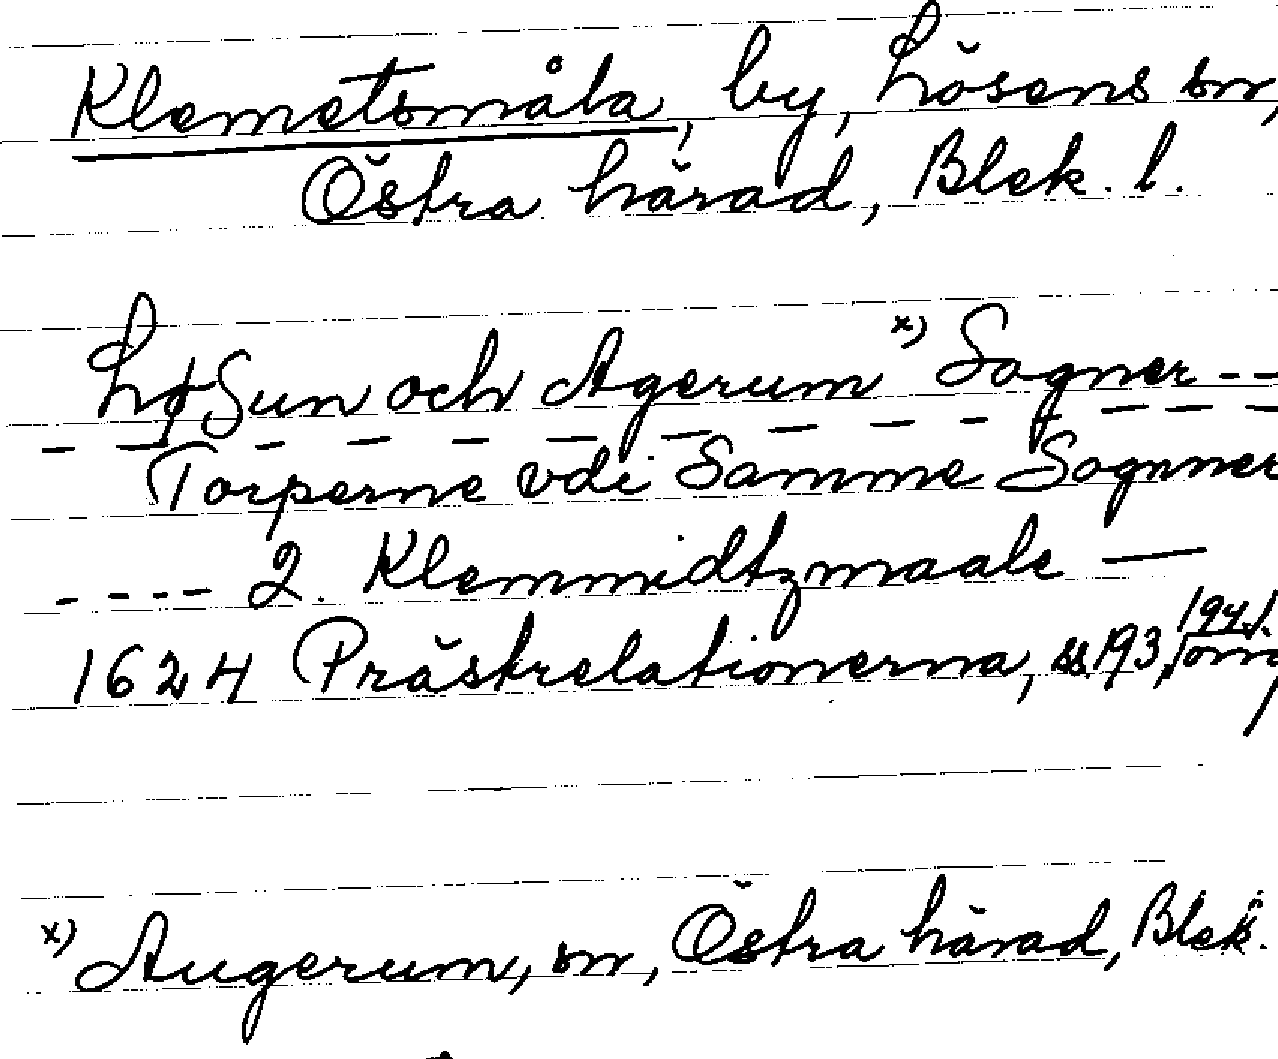 Klemetsmåla, by, Lösens sn,
Östra härad, Blek. l.
LøSun och Agerum x) Sogner --
Torperne vdi Samme Sognner
---- 2. Klemmidtzmaale —
1624 Prästrelationerna, ss. 193, 194 f.
x) Augerum, sn, Östra härad, Blek.